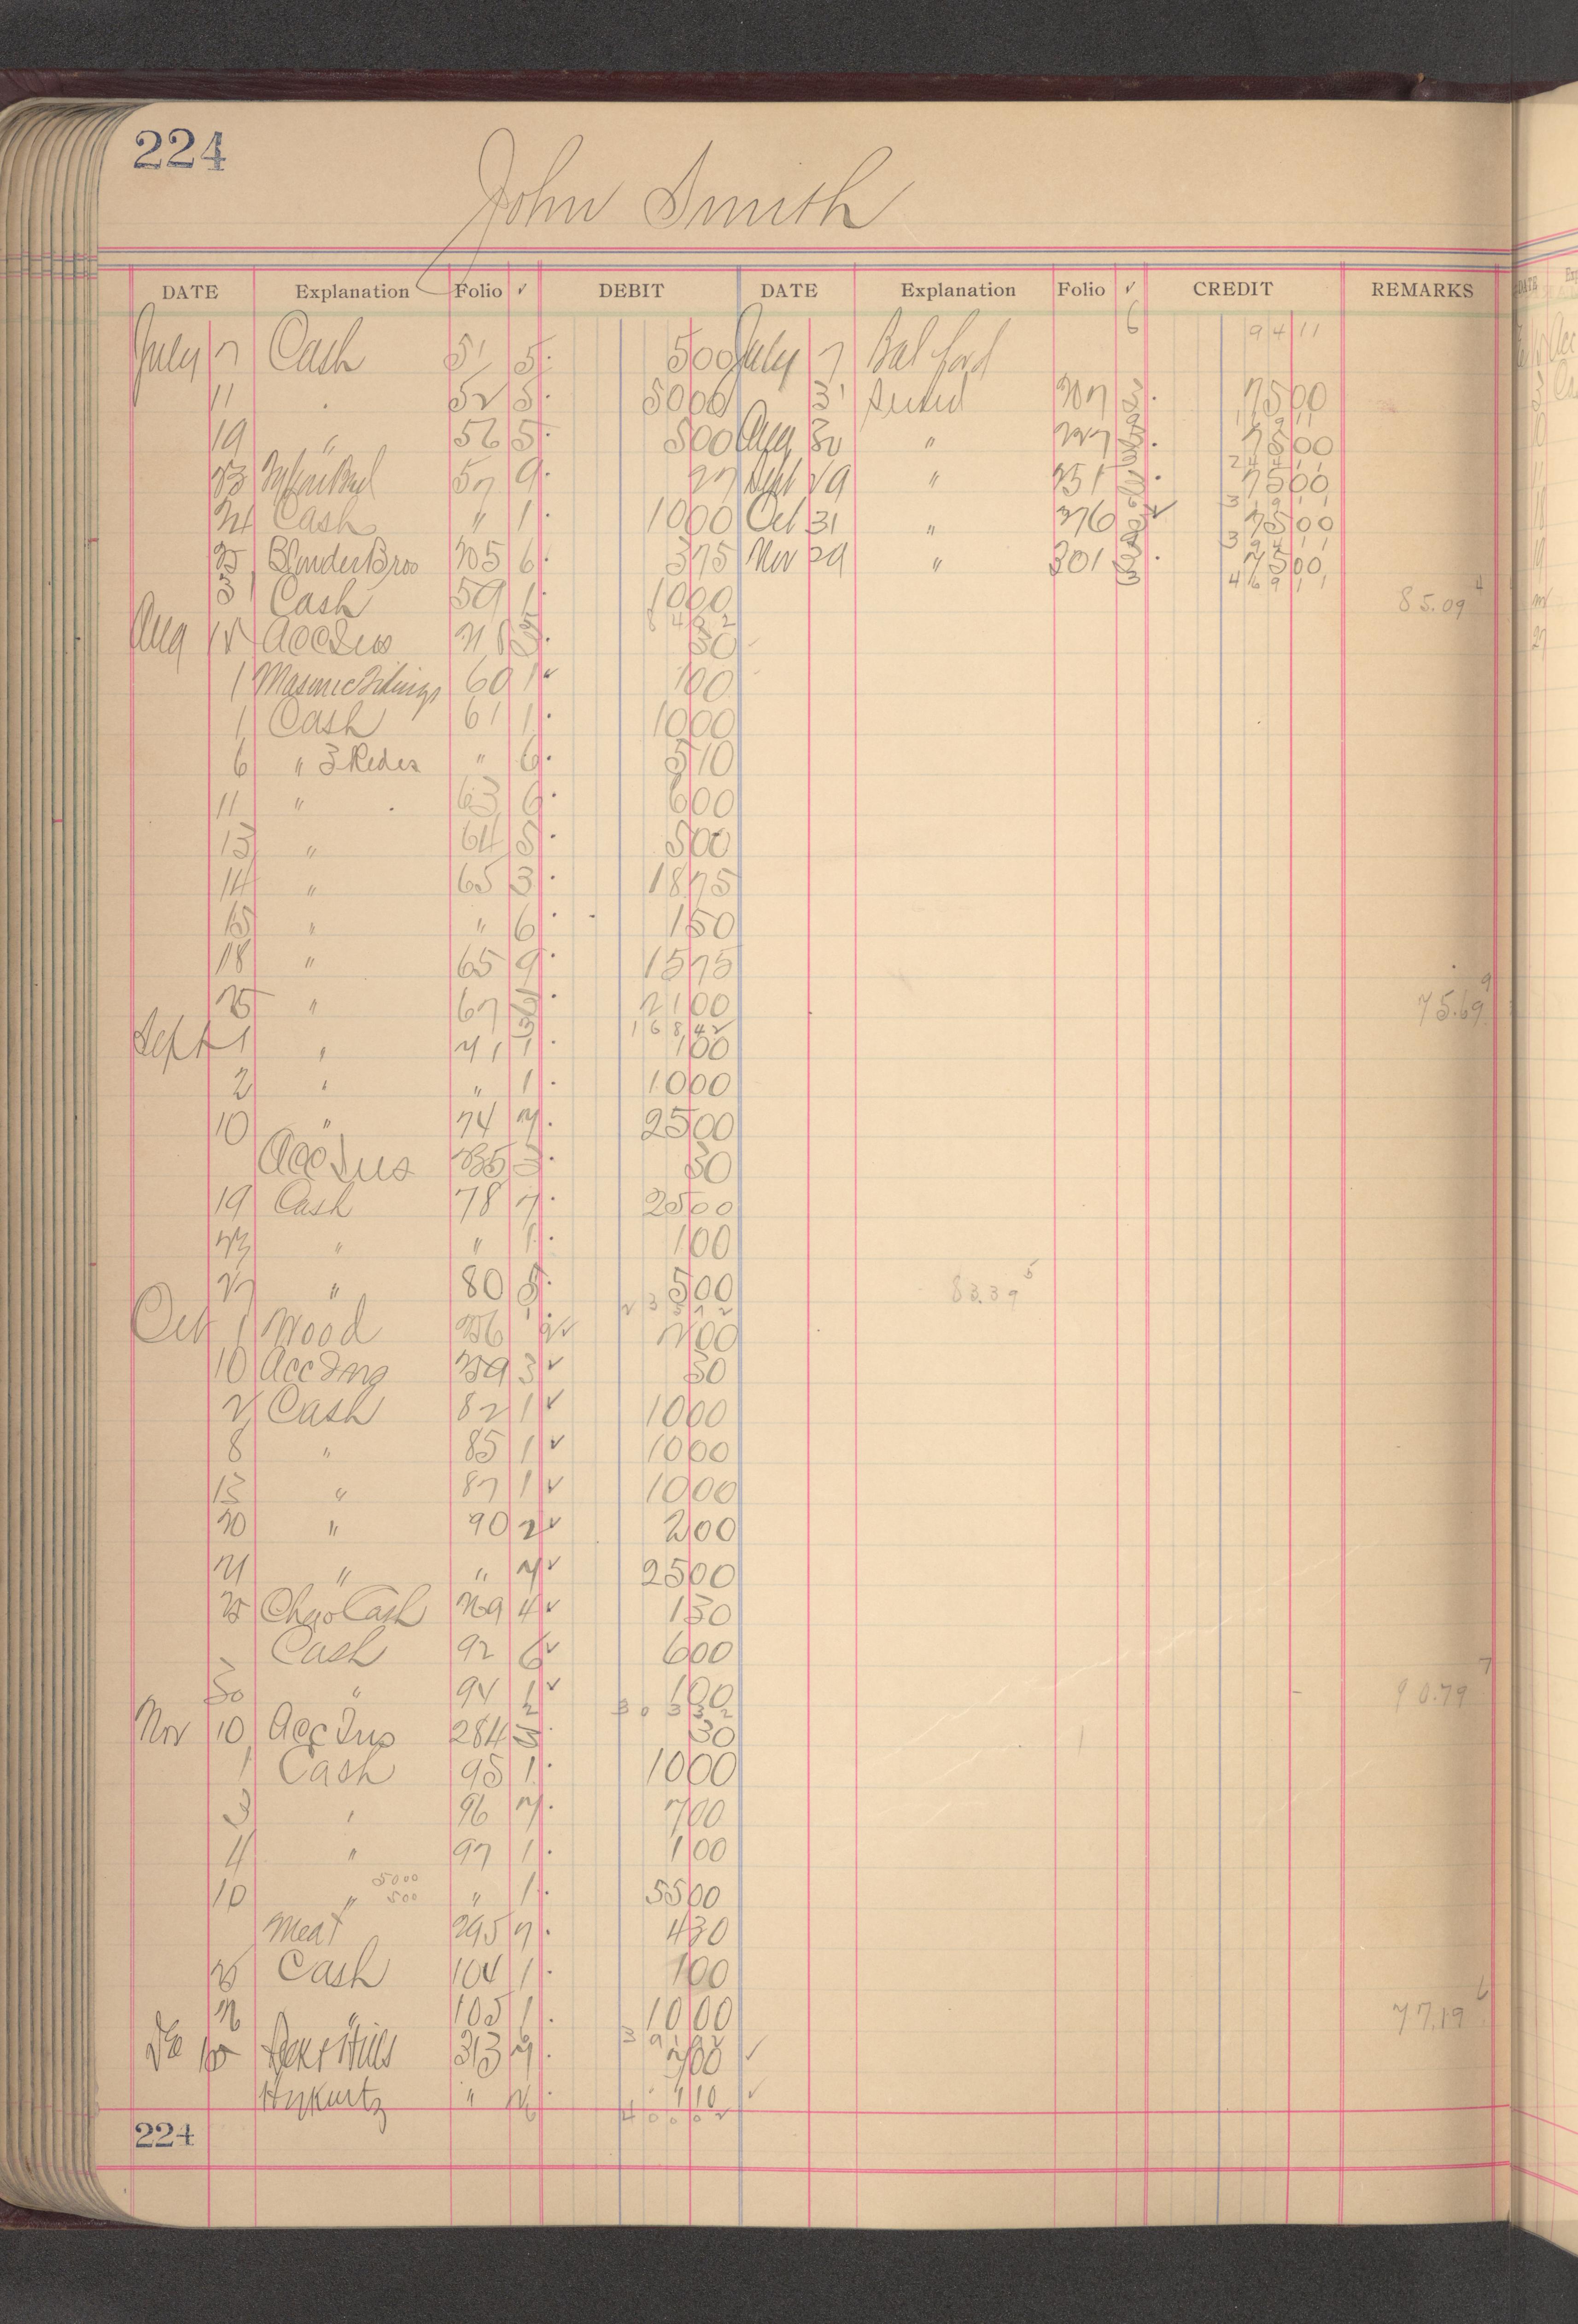 224
John Smith
DATE Explanation Folio ✓ DEBIT DATE Explanation Folio ✓ CREDIT REMARKS
6 94 11
July 7 Cash 51 5 500 July 7 Bal ford
11 " 52 5 5000 31 207 7500
19 " 56 5 500 Aug 30 " 227 7500
23 57 9 27 Sept 29 " 251 7500
24 Cash " 1 1000 Oct 31 " 276 ✓ 7500
25 Bros 205 6 375 Nov 29 " 301 7500
31 Cash 59 1 1000 469 11 85.09 4
Aug 12 Acc Ins 218 3 50
1 Masonic Tidings 60 1 ✓ 100
1 Cash 61 1 1000
6 " 3 Redes " 6 510
11 " 63 6 600
13 " 64 5 500
14 " 65 3 1875
15 " " 6 150
18 " 65 9 1575
25 " 67 2100 75.69 9
168 42
Sept 1 " 71 1 100
2 " " 1 1000
10 " 74 7 2500
Acc Ins 235 3 50
19 Cash 78 7 2500
23 " " 1 100
27 " 80 5 500 83.39 5
235 92
Oct 1 Wood 256 9 ✓ 200
10 Acc Ins 259 3 ✓ 50
2 Cash 82 1 ✓ 1000
8 " 85 1 ✓ 1000
13 " 87 1 ✓ 1000
20 " 90 2 ✓ 200
21 " " 7 ✓ 2500
25 Chgo Cash 269 4 ✓ 150
Cash 92 6 ✓ 600
30 " 94 1 ✓ 100 90.79 7
303 32
Nov 10 Acc Ins 284 3 50
1 Cash 95 1 1000
3 " 96 7 700
4 " 97 1 100
5000
10 " 500 " 1 5500
Meat 295 7 430
25 Cash 104 1 100
26 " 105 1 1000 77.19 6
De 10 Hills 313 7 200 ✓
Hy Kurtz " 410 ✓
400 02
224